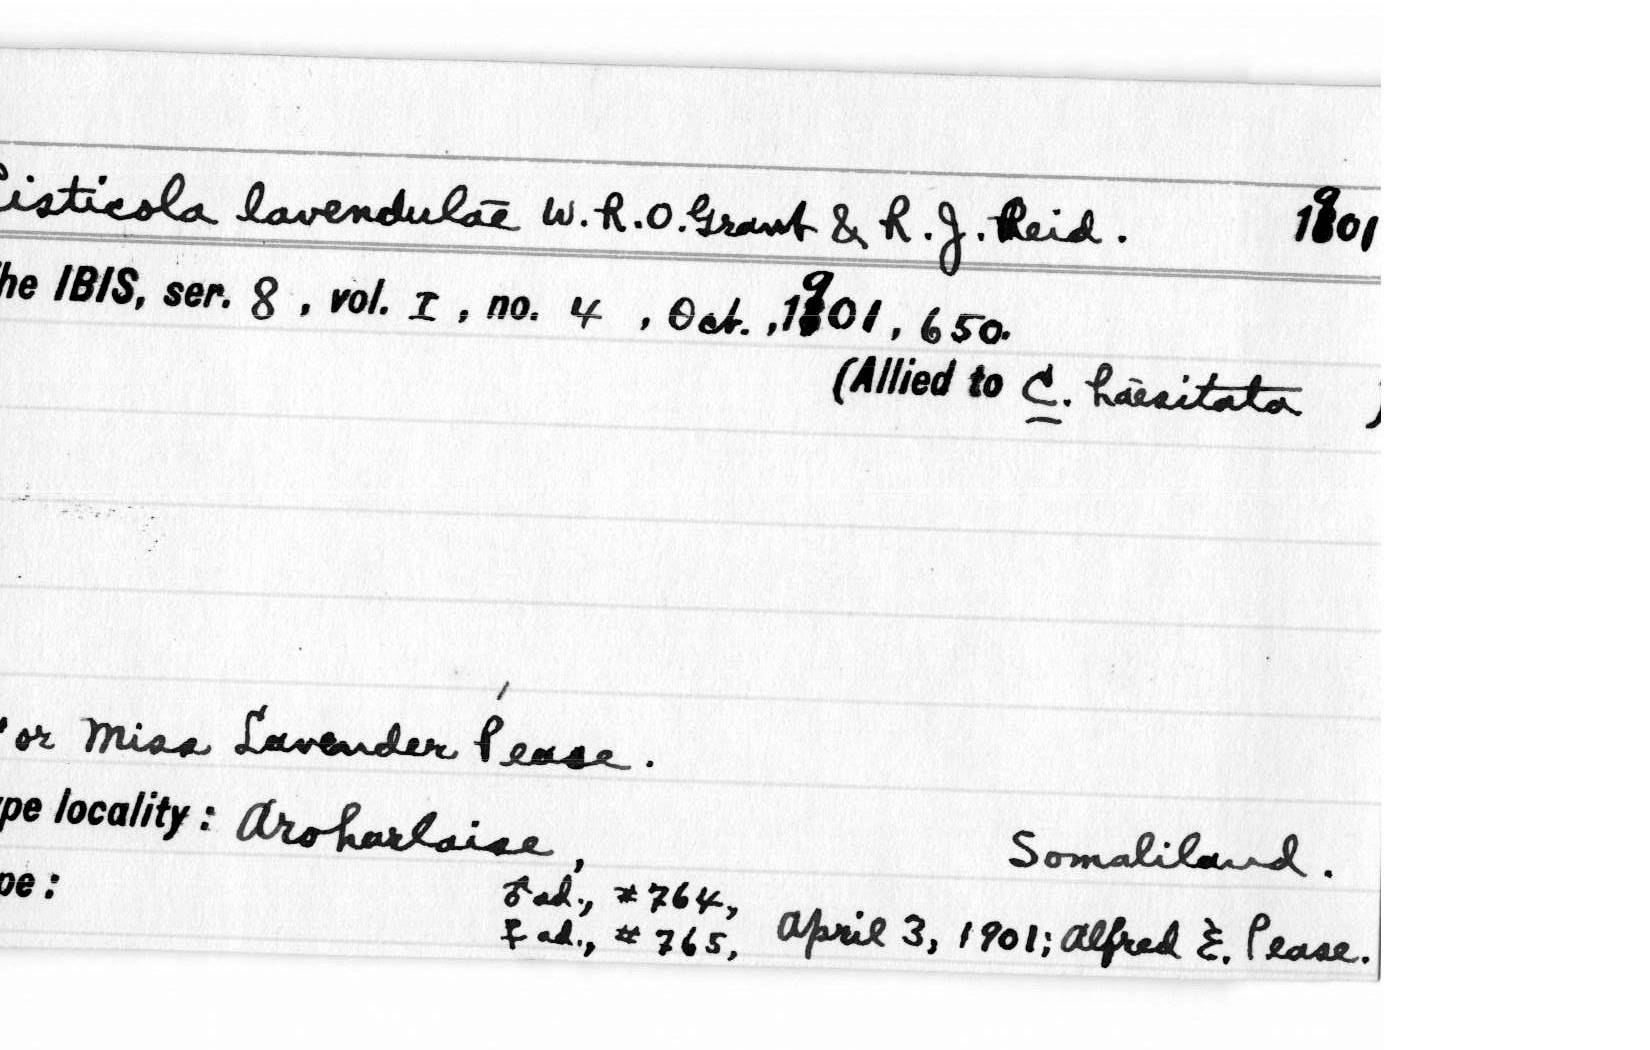 Cisticola lavendulae W. R. O. Grant & R. J. Reid. 1901
The IBIS, ser. 8, vol. I, no. 4, Oct., 1901, 650.
(Allied to C. haesitata )
For Miss Lavender Pease.
ype locality: Aroharlaise, Somaliland.
pe:
♂ ad., #764,
♀ ad., #765, April 3, 1901; Alfred E. Pease.